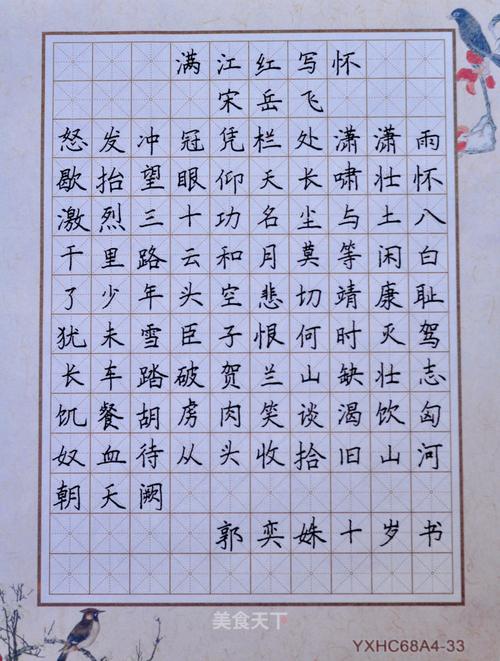 满江红写怀
宋岳飞
怒发冲冠凭栏处潇潇雨
歇抬望眼仰天长啸壮怀
激烈三十功名尘与土八
千里路云和月莫等闲白
了少年头空悲切靖康耻
犹未雪臣子恨何时灭驾
长车踏破贺兰山缺壮志
饥餐胡虏肉笑谈渴饮匈
奴血待从头收拾旧山河
朝天阙
郭奕姝十岁书
美食天下
YXHC68A4-33